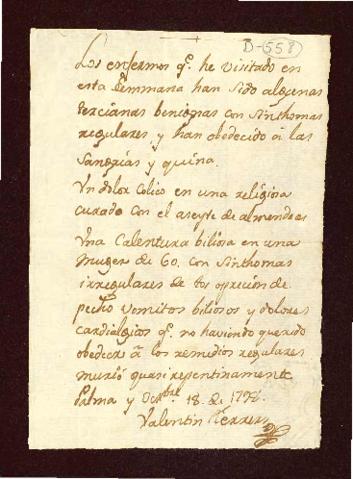 D-558
Los enfermos q.e he visitado en
esta Semmana han sido algunas
tercianas benignas con Sinthomas
regulares, y han obedecido à las
Sangrias y quina.
Un dolor Colico en una religiosa
curado con el aseyte de almendras
Una Calentura biliosa en una
muger de 60. con Sinthomas
irregulares de tos opreción de
pecho vomitos biliosos y dolores
cardialgicos q.e no haviendo querido
obedecer à los remedios regulares
murió quasi repentinamente
Palma y Octbre 18. de
Valentin Terrers